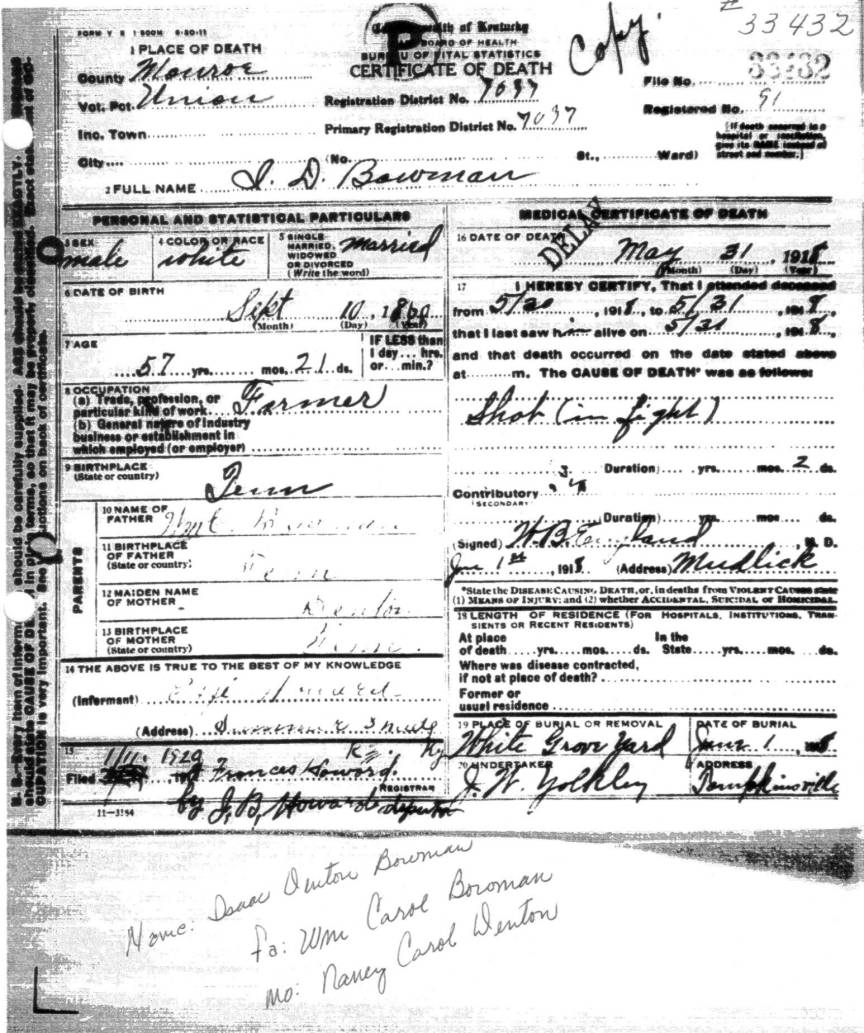 # 33432
Copy.
FORM V S 1 500M 5-20-11
Commonwealth of Kentucky
BOARD OF HEALTH
BUREAU OF VITAL STATISTICS
CERTIFICATE OF DEATH
1 PLACE OF DEATH
County Monroe
Vot. Pct. Union
Inc. Town
City
Registration District No. 7037
Primary Registration District No. 7037
(No. St., Ward)
File No. 33432
Registered No. 91
(If death occurred in a hospital or institution, give its NAME instead of street and number.)
2 FULL NAME I. D. Bowman
PERSONAL AND STATISTICAL PARTICULARS
3 SEX male
4 COLOR OR RACE white
5 SINGLE MARRIED, WIDOWED OR DIVORCED (Write the word) Married
6 DATE OF BIRTH
Sept 10, 1860
(Month) (Day) (Year)
7 AGE
57 yrs. mos. 21 ds.
IF LESS than 1 day... hrs. or... min.?
8 OCCUPATION
(a) Trade, profession, or particular kind of work Farmer
(b) General nature of industry business or establishment in which employed (or employer)
9 BIRTHPLACE (State or country)
Tenn
PARENTS
10 NAME OF FATHER Bowman
11 BIRTHPLACE OF FATHER (State or country) Tenn
12 MAIDEN NAME OF MOTHER Denton
13 BIRTHPLACE OF MOTHER (State or country) Tenn
14 THE ABOVE IS TRUE TO THE BEST OF MY KNOWLEDGE
(Informant) Howard
(Address) Summer Shade
Ky.
15
Filed 1/11. 1920 Frances Howard.
REGISTRAR
by J. B. Howard deputy
11-3184
MEDICAL CERTIFICATE OF DEATH
DELAY
16 DATE OF DEATH May 31, 1918
(Month) (Day) (Year)
17 I HEREBY CERTIFY, That I attended deceased
from 5/30, 1918, to 5/31, 1918,
that I last saw him alive on 5/31, 1918,
and that death occurred on the date stated above
at m. The CAUSE OF DEATH* was as follows:
Shot (in fight)
Duration yrs. mos. 2 ds.
Contributory
(SECONDARY)
(Duration) yrs. mos. ds.
(Signed) W. B. M. D.
Jun 1st, 1918 (Address) Mudlick
*State the DISEASE CAUSING DEATH, or, in deaths from VIOLENT CAUSES state (1) MEANS OF INJURY; and (2) whether ACCIDENTAL, SUICIDAL or HOMICIDAL.
18 LENGTH OF RESIDENCE (FOR HOSPITALS, INSTITUTIONS, TRANSIENTS OR RECENT RESIDENTS)
At place of death yrs. mos. ds. In the State yrs. mos. ds.
Where was disease contracted, if not at place of death?
Former or usual residence
19 PLACE OF BURIAL OR REMOVAL
White Grove Yard
DATE OF BURIAL
June 1, 1918
20 UNDERTAKER
J. W. Yokley
ADDRESS
Tompkinsville
Name: Isaac Denton Bowman
Fa: Wm Carol Bowman
Mo: Nancy Carol Denton